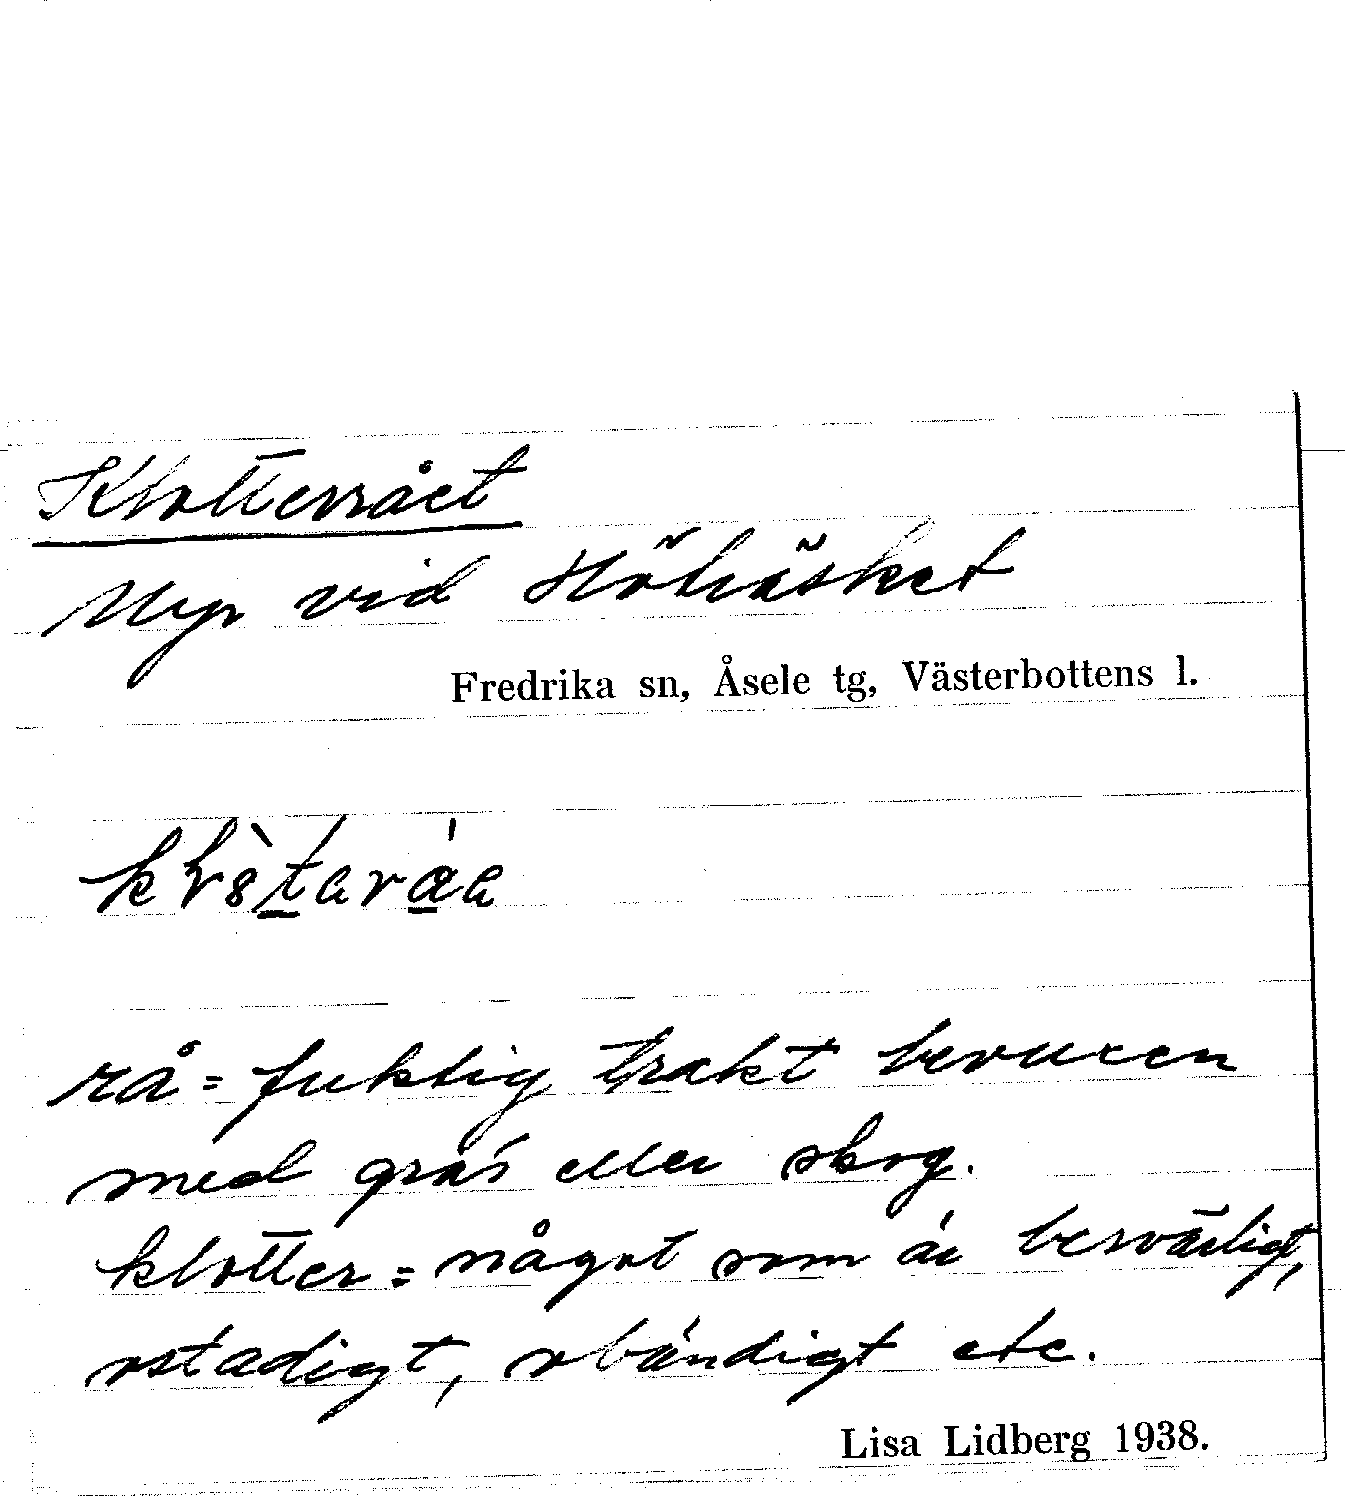 Klotterrået
Myr vid Höträsket
Fredrika sn, Åsele tg, Västerbottens l.
rå = fuktig trakt bevuxen
med gräs eller skog.
klotter = något som är besvärligt,
ostadigt, obändigt etc.
Lisa Lidberg 1938.